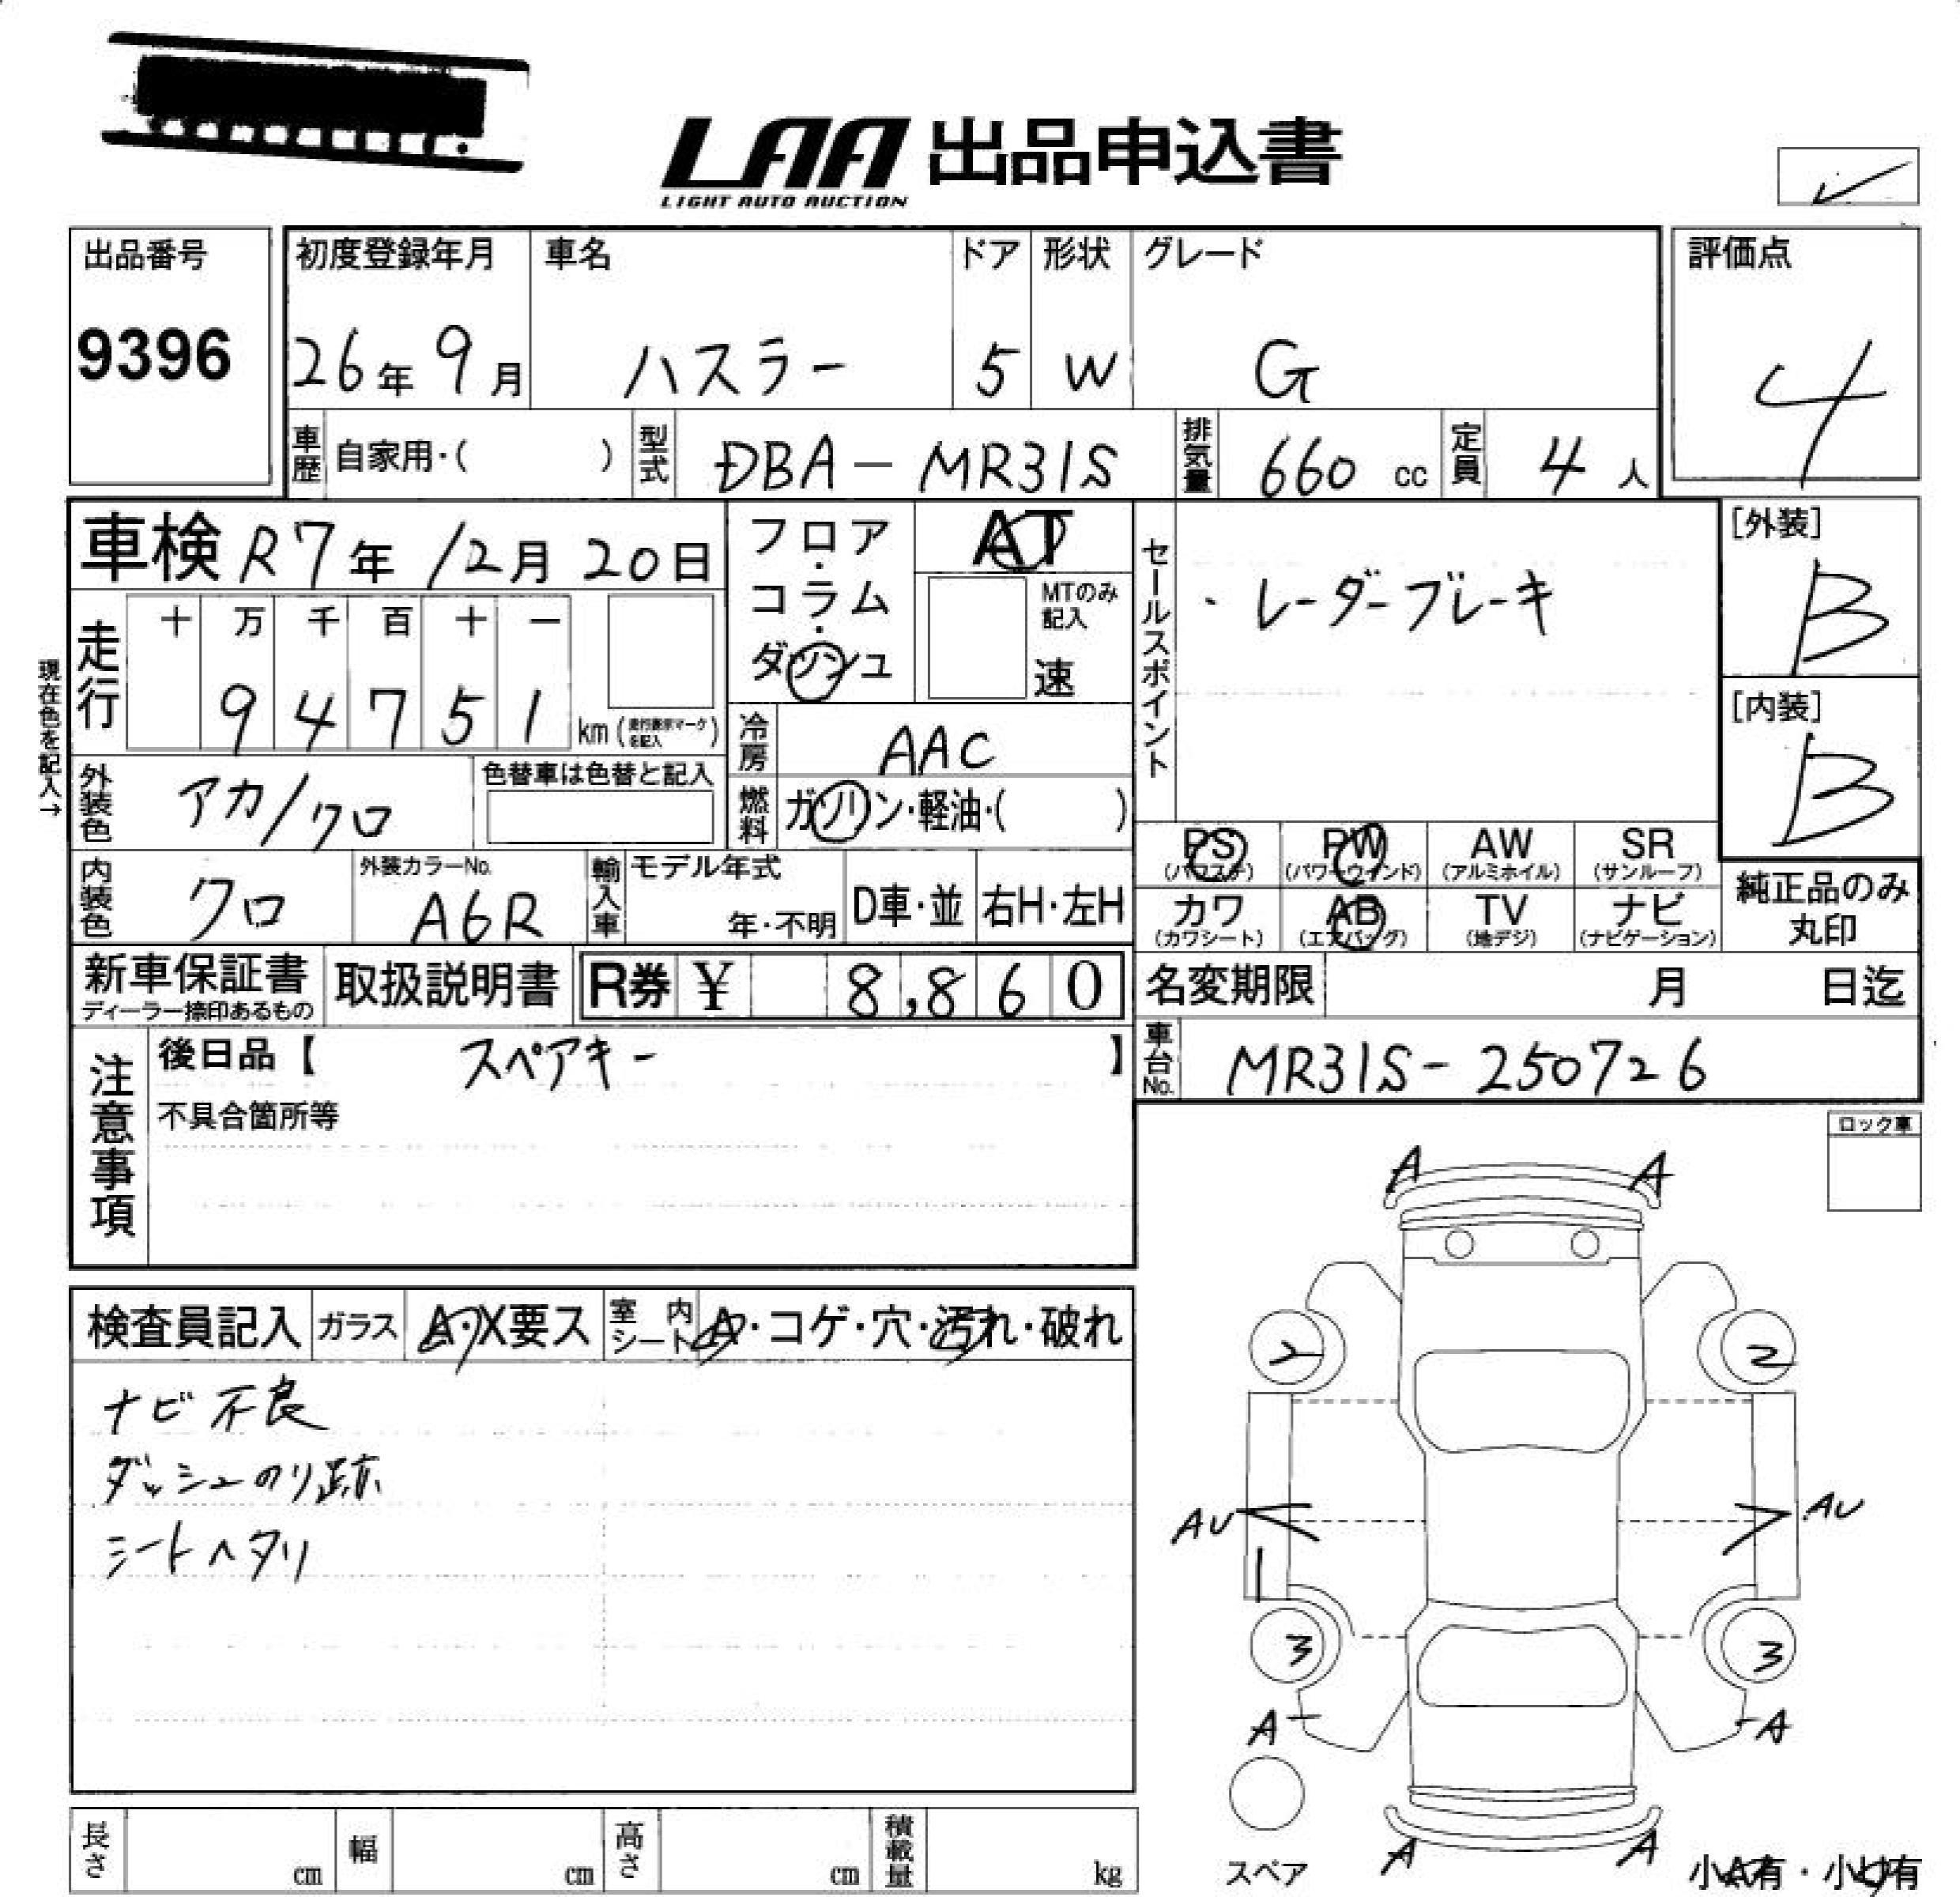 LAA 出品申込書
LIGHT AUTO AUCTION
出品番号
9396
初度登録年月 車名 ドア 形状 グレード
26年 9月 ハスラー 5 W G
評価点
4
車歴 自家用・( ) 型式 DBA-MR31S 排気量 660 cc 定員 4 人
車検 R7年 12月 20日
フロア・コラム・ダッシュ
AT
MTのみ記入
速
セールスポイント
・レーダーブレーキ
[外装]
B
[内装]
B
現在色を記入→
走行
十 万 千 百 十 一
9 4 7 5 1 km (走行表示マークを記入)
冷房 AAC
外装色 アカ/クロ 色替車は色替と記入
燃料 ガソリン・軽油・( )
PS (パワステ) PW (パワーウインド) AW (アルミホイル) SR (サンルーフ)
カワ (カワシート) AB (エアバッグ) TV (地デジ) ナビ (ナビゲーション)
純正品のみ丸印
内装色 クロ 外装カラーNo. A6R 輸入車 モデル年式 年・不明 D車・並 右H・左H
新車保証書 ディーラー捺印あるもの 取扱説明書 R券 ¥ 8,860
名変期限 月 日迄
車台No. MR31S-250726
注意事項
後日品【 スペアキー 】
不具合箇所等
ロック車
検査員記入 ガラス A・X要ス 室内シート A・コゲ・穴・汚れ・破れ
ナビ不良
ダッシュのり跡
シートヘタリ
A A
2 2
AU AU
3 3
A A
A A
スペア
小A有・小U有
長さ cm 幅 cm 高さ cm 積載量 kg